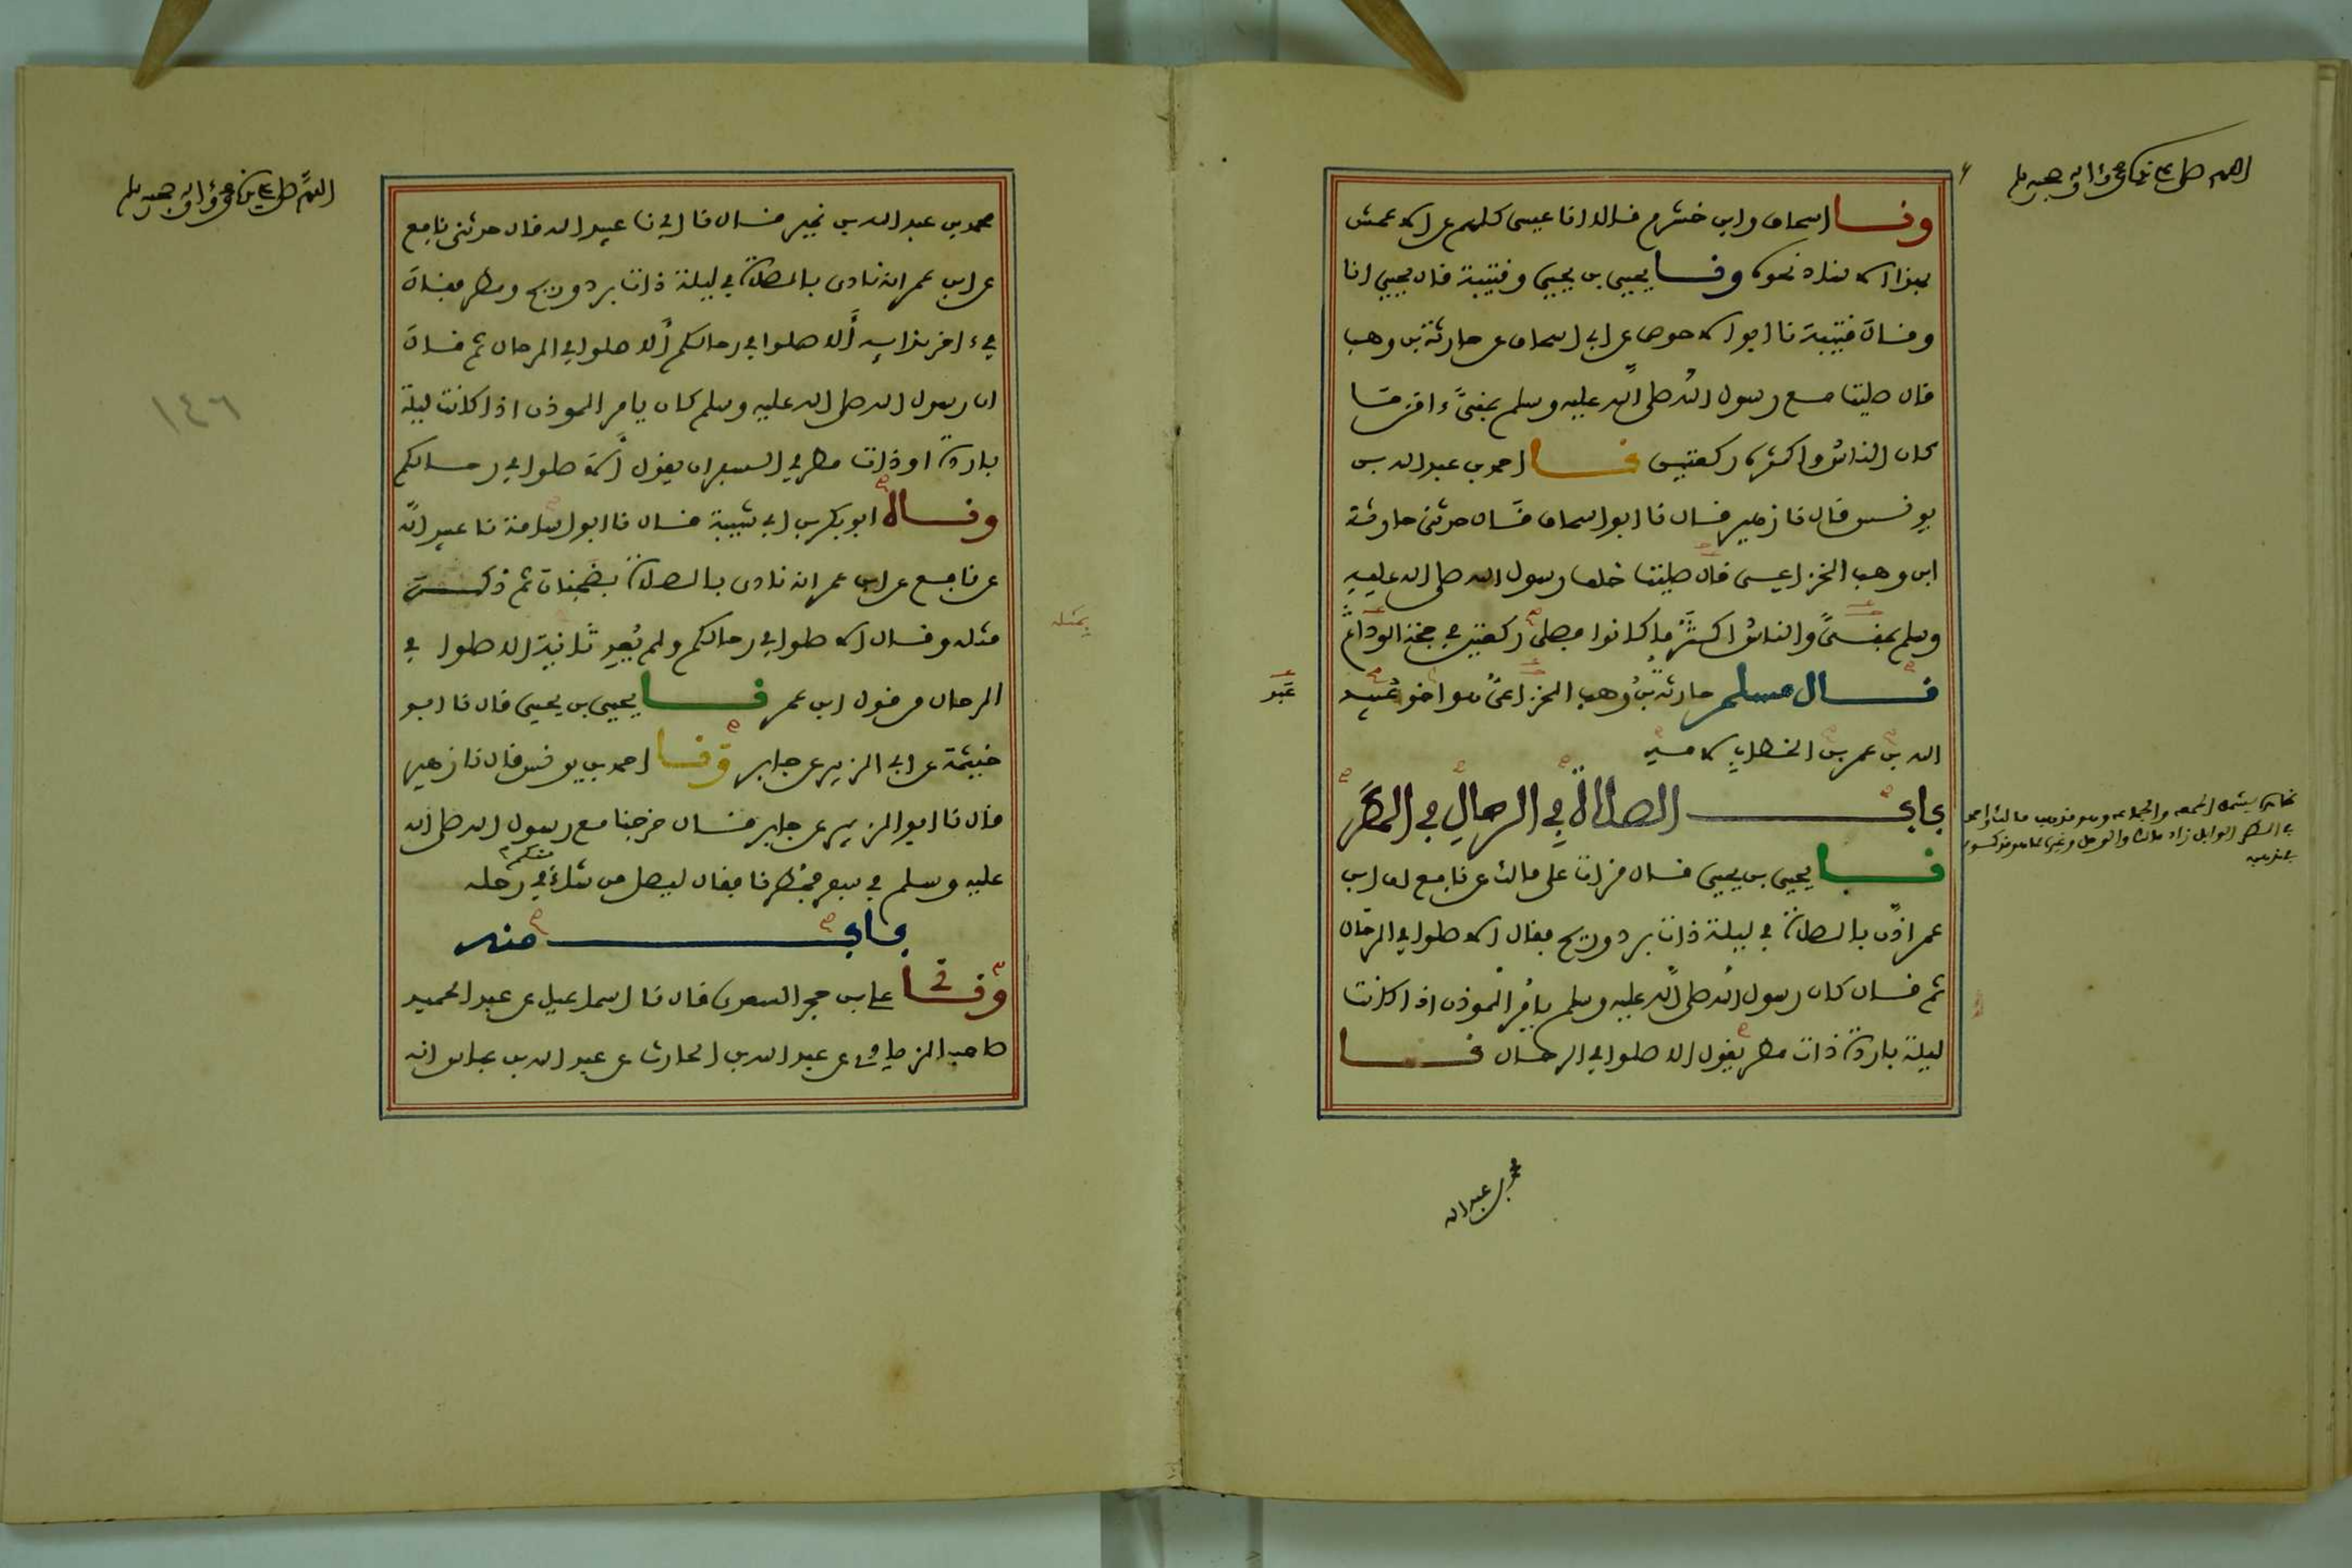 اللهم صل على نبينا محمد وءاله وصحبه وسلم
ونا اسحاق وابن خشرم قالا انا عيسى كلهم عن الاعمش
بهذا الاسناد نحوه ونا يحيى بن يحيى وقتيبة قال يحيى انا
وقال قتيبة نا ابو الاحوص عن ابي اسحاق عن حارثة بن وهب
قال صليت مع رسول الله صلى الله عليه وسلم بمنى ءامن ما
كان الناس واكثره ركعتين نا احمد بن عبد الله بن
يونس قال نا زهير قال نا ابو اسحاق قال حدثني حارثة
ابن وهب الخزاعي قال صليت خلف رسول الله صلى الله عليه
وسلم بمنى والناس اكثر ما كانوا فصلى ركعتين في حجة الوداع
قال مسلم حارثة بن وهب الخزاعي هو اخو عبيد
عبد
الله بن عمر بن الخطاب لامه
باب الصلاة في الرحال في المطر
نا يحيى بن يحيى قال قرات على مالك عن نافع ان ابن
عمر اذن بالصلاة في ليلة ذات برد وريح فقال الا صلوا في الرحال
ثم قال كان رسول الله صلى الله عليه وسلم يامر الموذن اذا كانت
ليلة باردة ذات مطر يقول الا صلوا في الرحال نا
محمد بن عبد الله
اللهم صل على نبينا محمد وءاله وصحبه وسلم
محمد بن عبد الله بن نمير قال نا ابي نا عبيد الله قال حدثني نافع
عن ابن عمر انه نادى بالصلاة في ليلة ذات برد وريح ومطر فقال
في ءاخر ندايه ألا صلوا في رحالكم ألا صلوا في الرحال ثم قال
ان رسول الله صلى الله عليه وسلم كان يامر الموذن اذا كانت ليلة
باردة او ذات مطر في السفر ان يقول الا صلوا في رحالكم
وناه ابو بكر بن ابي شيبة قال نا ابو اسامة نا عبيد الله
عن نافع عن ابن عمر انه نادى بالصلاة بضجنان ثم ذكر
بمثله
مثله وقال الا صلوا في رحالكم ولم يعد ثانية الا صلوا في
الرحال من قول ابن عمر نا يحيى بن يحيى قال نا ابو
خيثمة عن ابي الزبير عن جابر ونا احمد بن يونس قال نا زهير
قال نا ابو الزبير عن جابر قال خرجنا مع رسول الله صلى الله
عليه وسلم في سفر فمطرنا فقال ليصل من شاء منكم في رحله
باب منه
ونا علي بن حجر السعدي قال نا اسماعيل عن عبد الحميد
صاحب الزيادي عن عبد الله بن الحارث عن عبد الله بن عباس انه
١٤٦